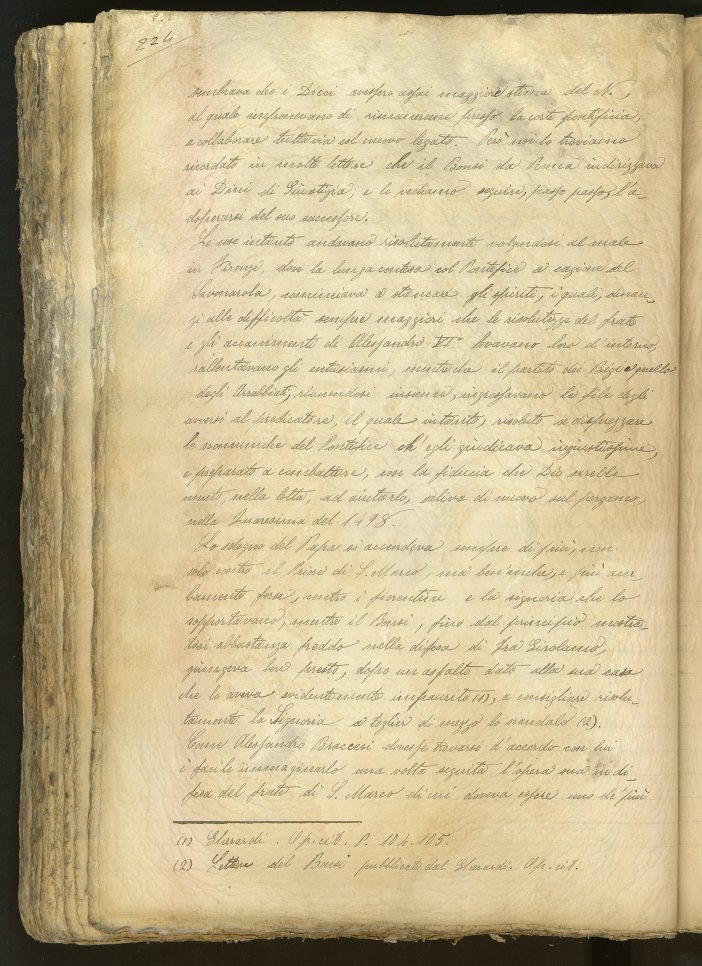 224
sembrava che i Dieci avessero assai maggiore stima del N.,
al quale imponevano di rimanersene presso la corte pontificia,
a collaborare tuttavia col nuovo legato. Però noi lo troviamo
ricordato in molte lettere che il Bonsi da Roma indirizzava
ai Dieci di Giustizia, e lo vediamo seguire, passo passo, l'a-
doperarsi del suo successore.
Le cose intanto andavano risolutamente volgendosi al male
in Firenze, dove la lunga contesa col Pontefice a cagione del
Savonarola, cominciava a stancare gli spiriti, i quali, dinan-
zi alle difficoltà sempre maggiori che le risolutezze del frate
e gli accanimenti di Alessandro VI° creavano loro d'intorno,
rallentavano gli entusiasmi, mentre che il partito dei Bigi e quello
degli Arrabbiati, riunendosi insieme, ingrossavano le file degli
avversi al predicatore, il quale intanto, risoluto a disprezzare
le scomuniche del Pontefice ch'egli giudicava ingiustissime,
e preparato a combattere, con la fiducia che Dio sarebbe
venuto, nella lotta, ad aiutarlo, saliva di nuovo sul pergamo,
nella Quaresima del 1498.
Lo sdegno del Papa si accendeva sempre di più, non
solo contro il Priore di S. Marco, ma benanche, e più acer-
bamente forse, contro i fiorentini e la signoria che lo
sopportavano, mentre il Bonsi, fino dal principio mostra-
tosi abbastanza freddo nella difesa di fra Girolamo,
giungeva ben presto, dopo un assalto dato alla sua casa
che lo aveva evidentemente impaurito (1), a consigliare risolu-
tamente la Signoria a toglier di mezzo lo scandalo (2).
Come Alessandro Braccesi dovesse trovarsi d'accordo con lui
è facile immaginarlo una volta seguita l'opera sua in di-
fesa del frate di S. Marco di cui doveva essere uno de' più
(1) Gherardi. Op. cit. P. 104. 105.
(2) Lettere del Bonsi pubblicate dal Gherardi. Op. cit.